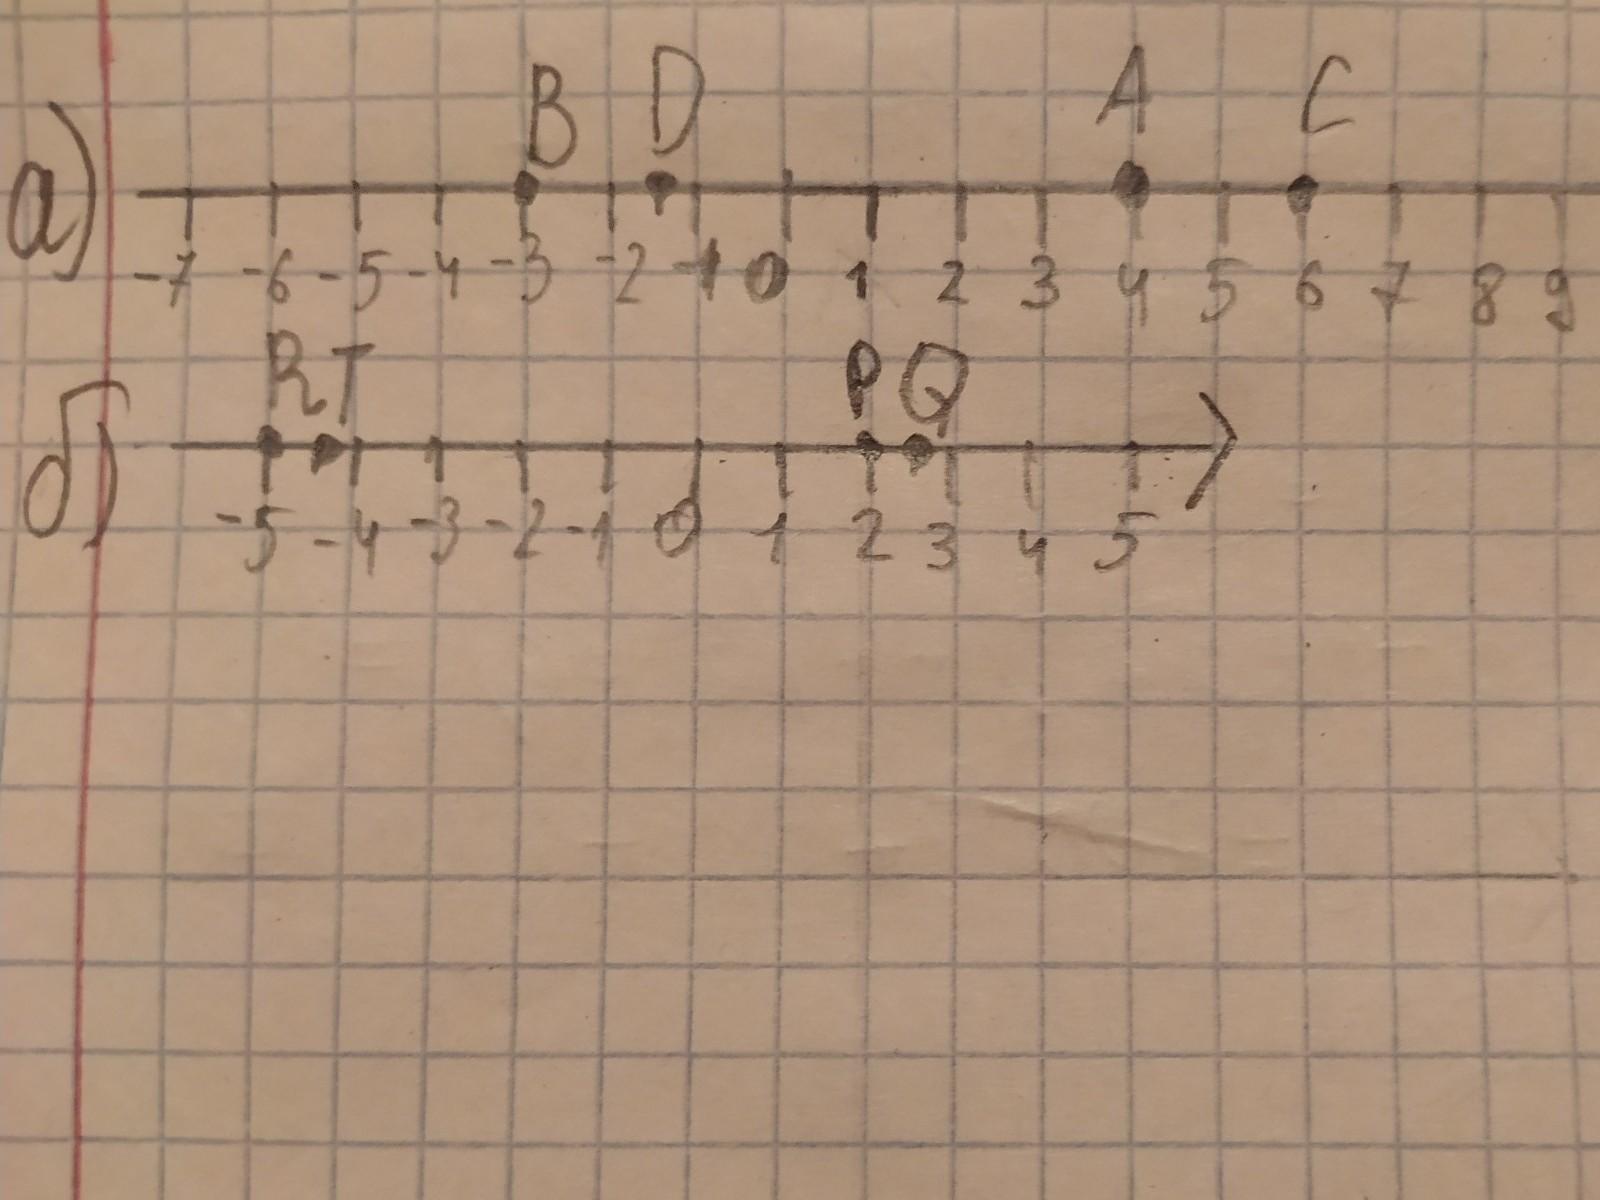 B D A C
а)
-7 -6 -5 -4 -3 -2 -1 0 1 2 3 4 5 6 7 8 9
R T P Q
б)
-5 -4 -3 -2 -1 0 1 2 3 4 5